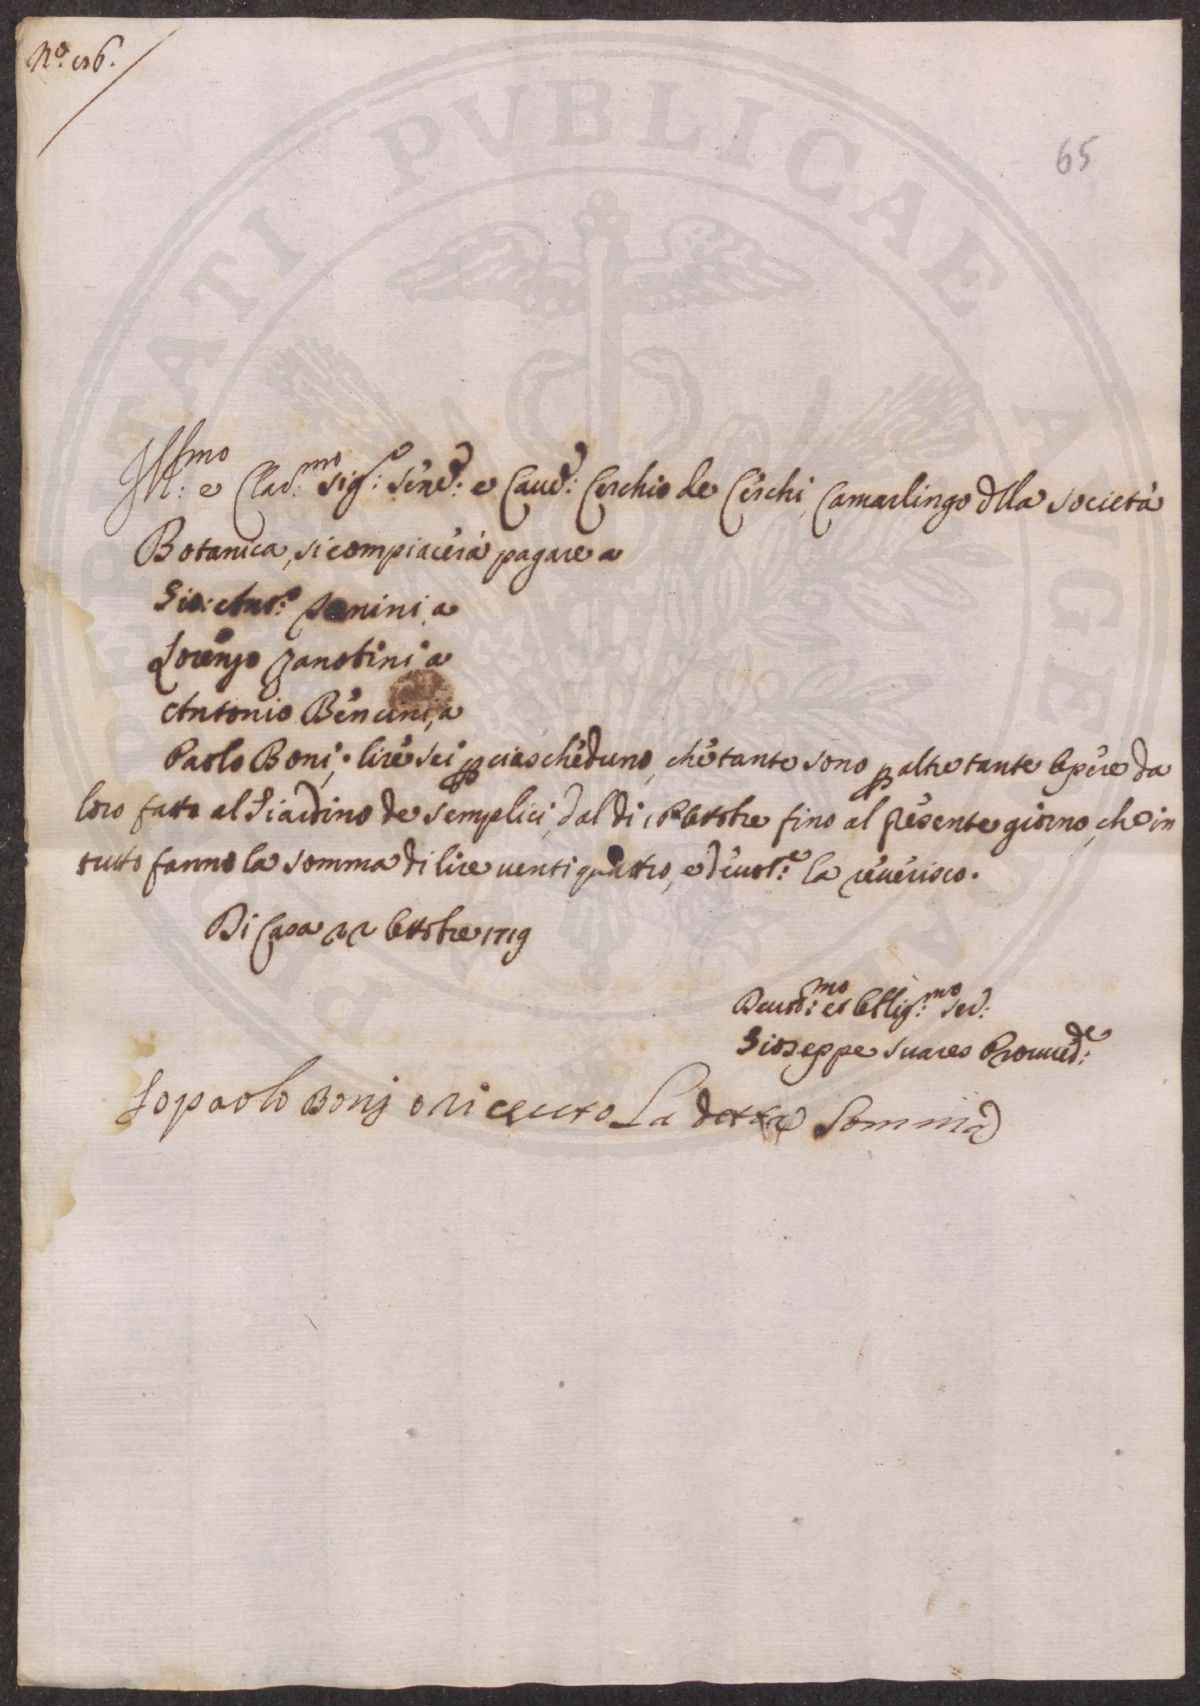 N.º 26.
65
Ill:mo e Clar:mo Sig:r Sen:e e Cav:e Cerchio de Cerchi, Camarlingo dlla Società
Botanica, si compiacerà pagare a
Gio: Ant:o Nanini, a
Lorenzo Zanobini, a
Antonio Bencini, a
Paolo Boni; lire sei p ciascheduno, che tante sono p altretante Opere da
loro fatte al Giardino de Semplici, dal di Ottobre fino al presente giorno, che in
tutto fanno la somma di lire ventiquattro, e devot:e la reverisco.
Di Casa 22 Ottobre 1719
Devot:mo et Obblig:mo Ser:
Gioseppe Suares Provved:re
Io paolo Bonj o riceuto La detta Somma
PUBLICAE